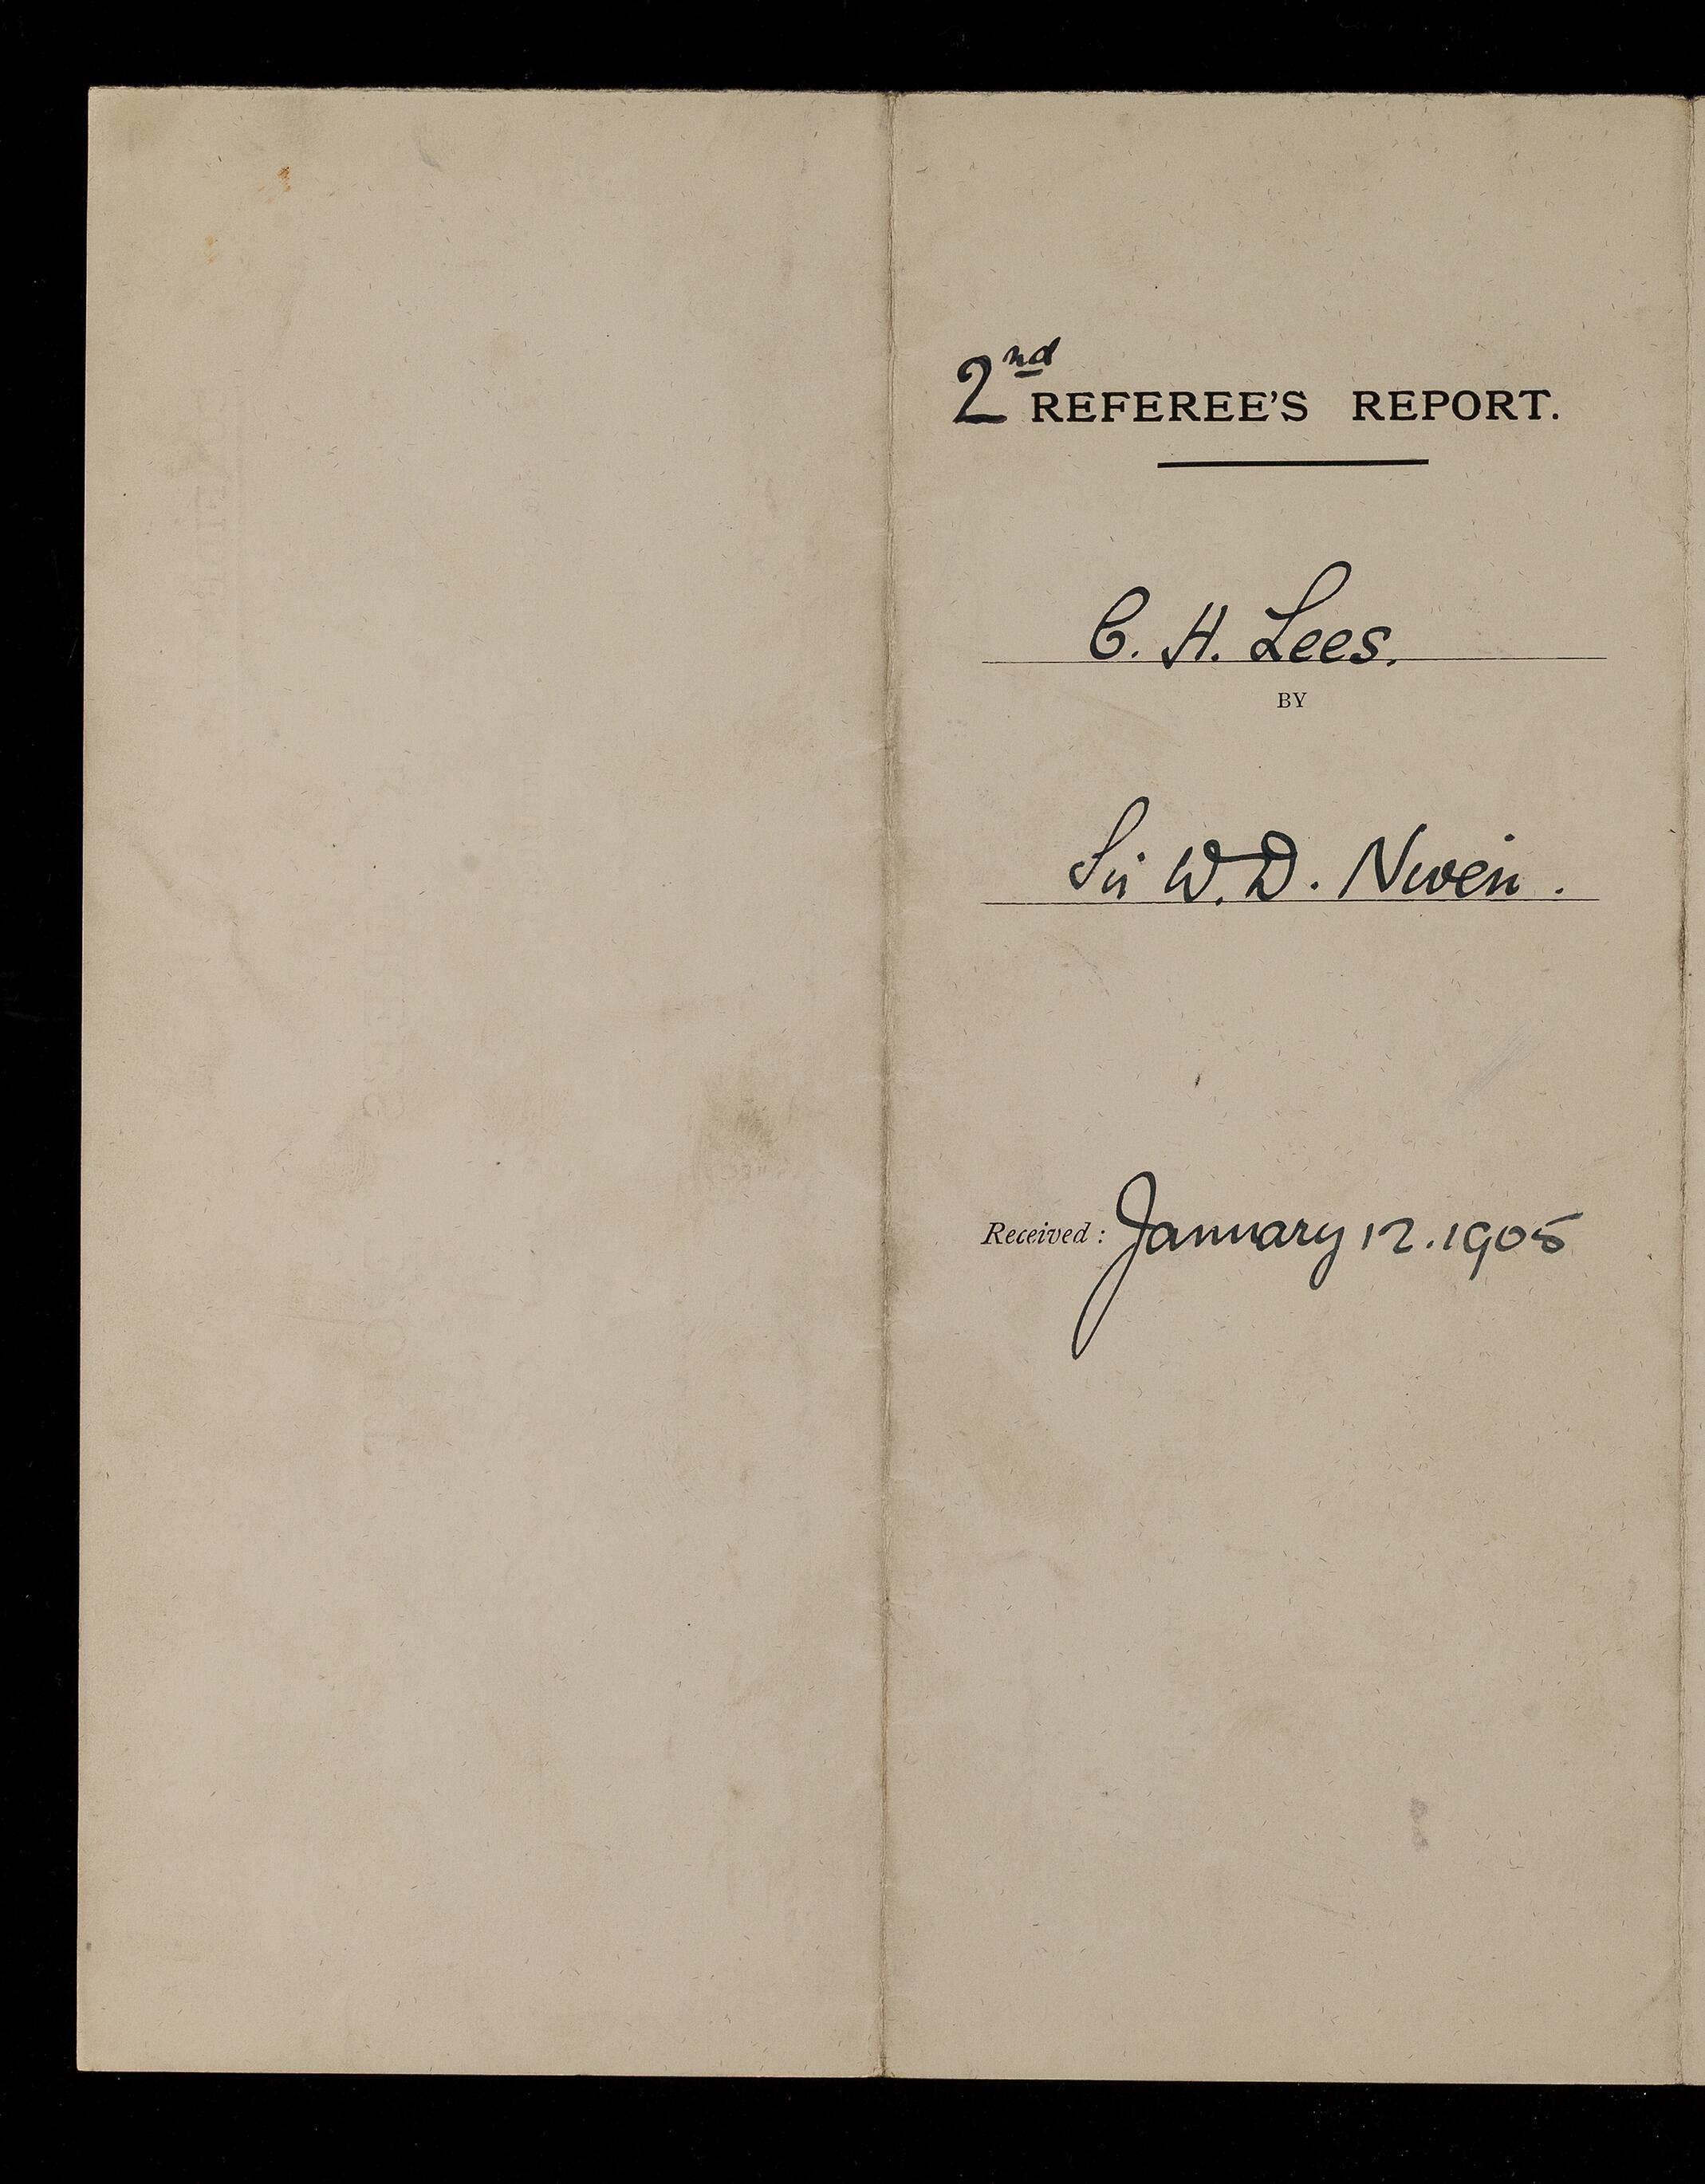 2nd REFEREE'S REPORT.
C. H. Lees.
BY
Sir W. D. Niven.
Received: January 12. 1905